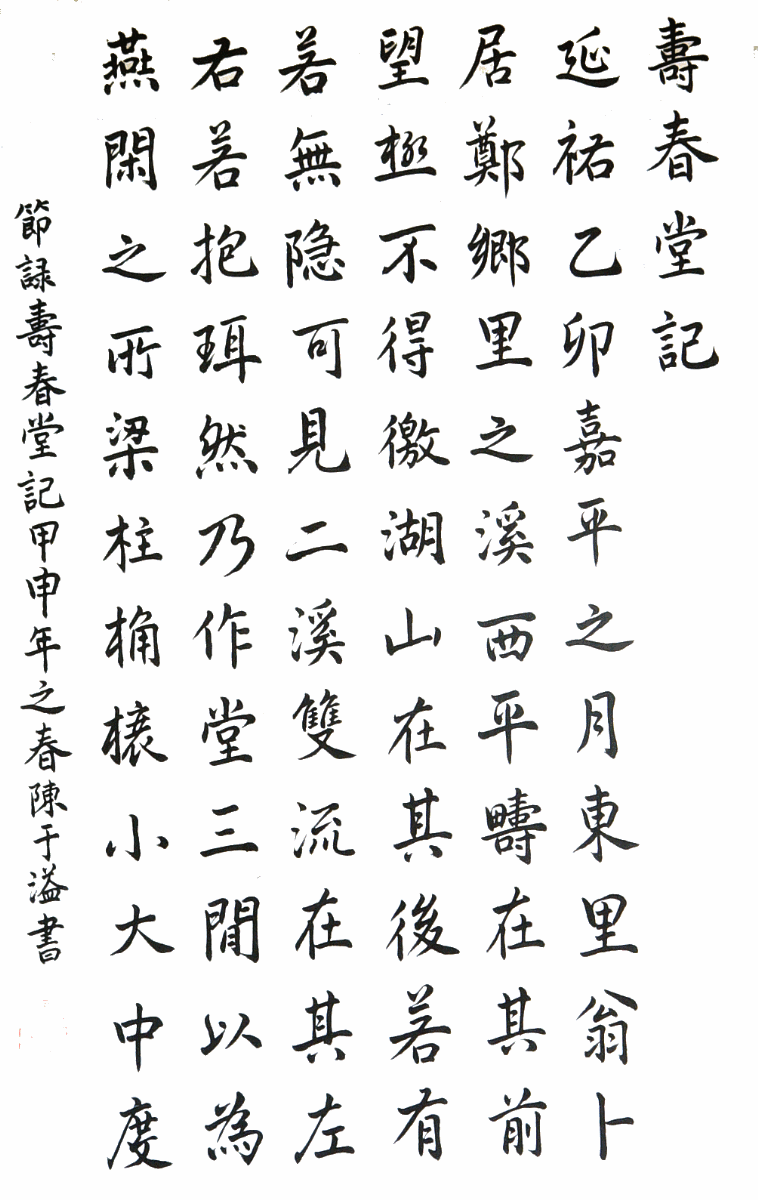 壽春堂記
延祐乙卯嘉平之月東里翁卜
居鄭鄉里之溪西平疇在其前
望極不得徼湖山在其後若有
若無隐可見二溪雙流在其左
右若抱珥然乃作堂三間以為
燕閑之所梁柱桷榱小大中度
節録壽春堂記甲申年之春陳于溢書